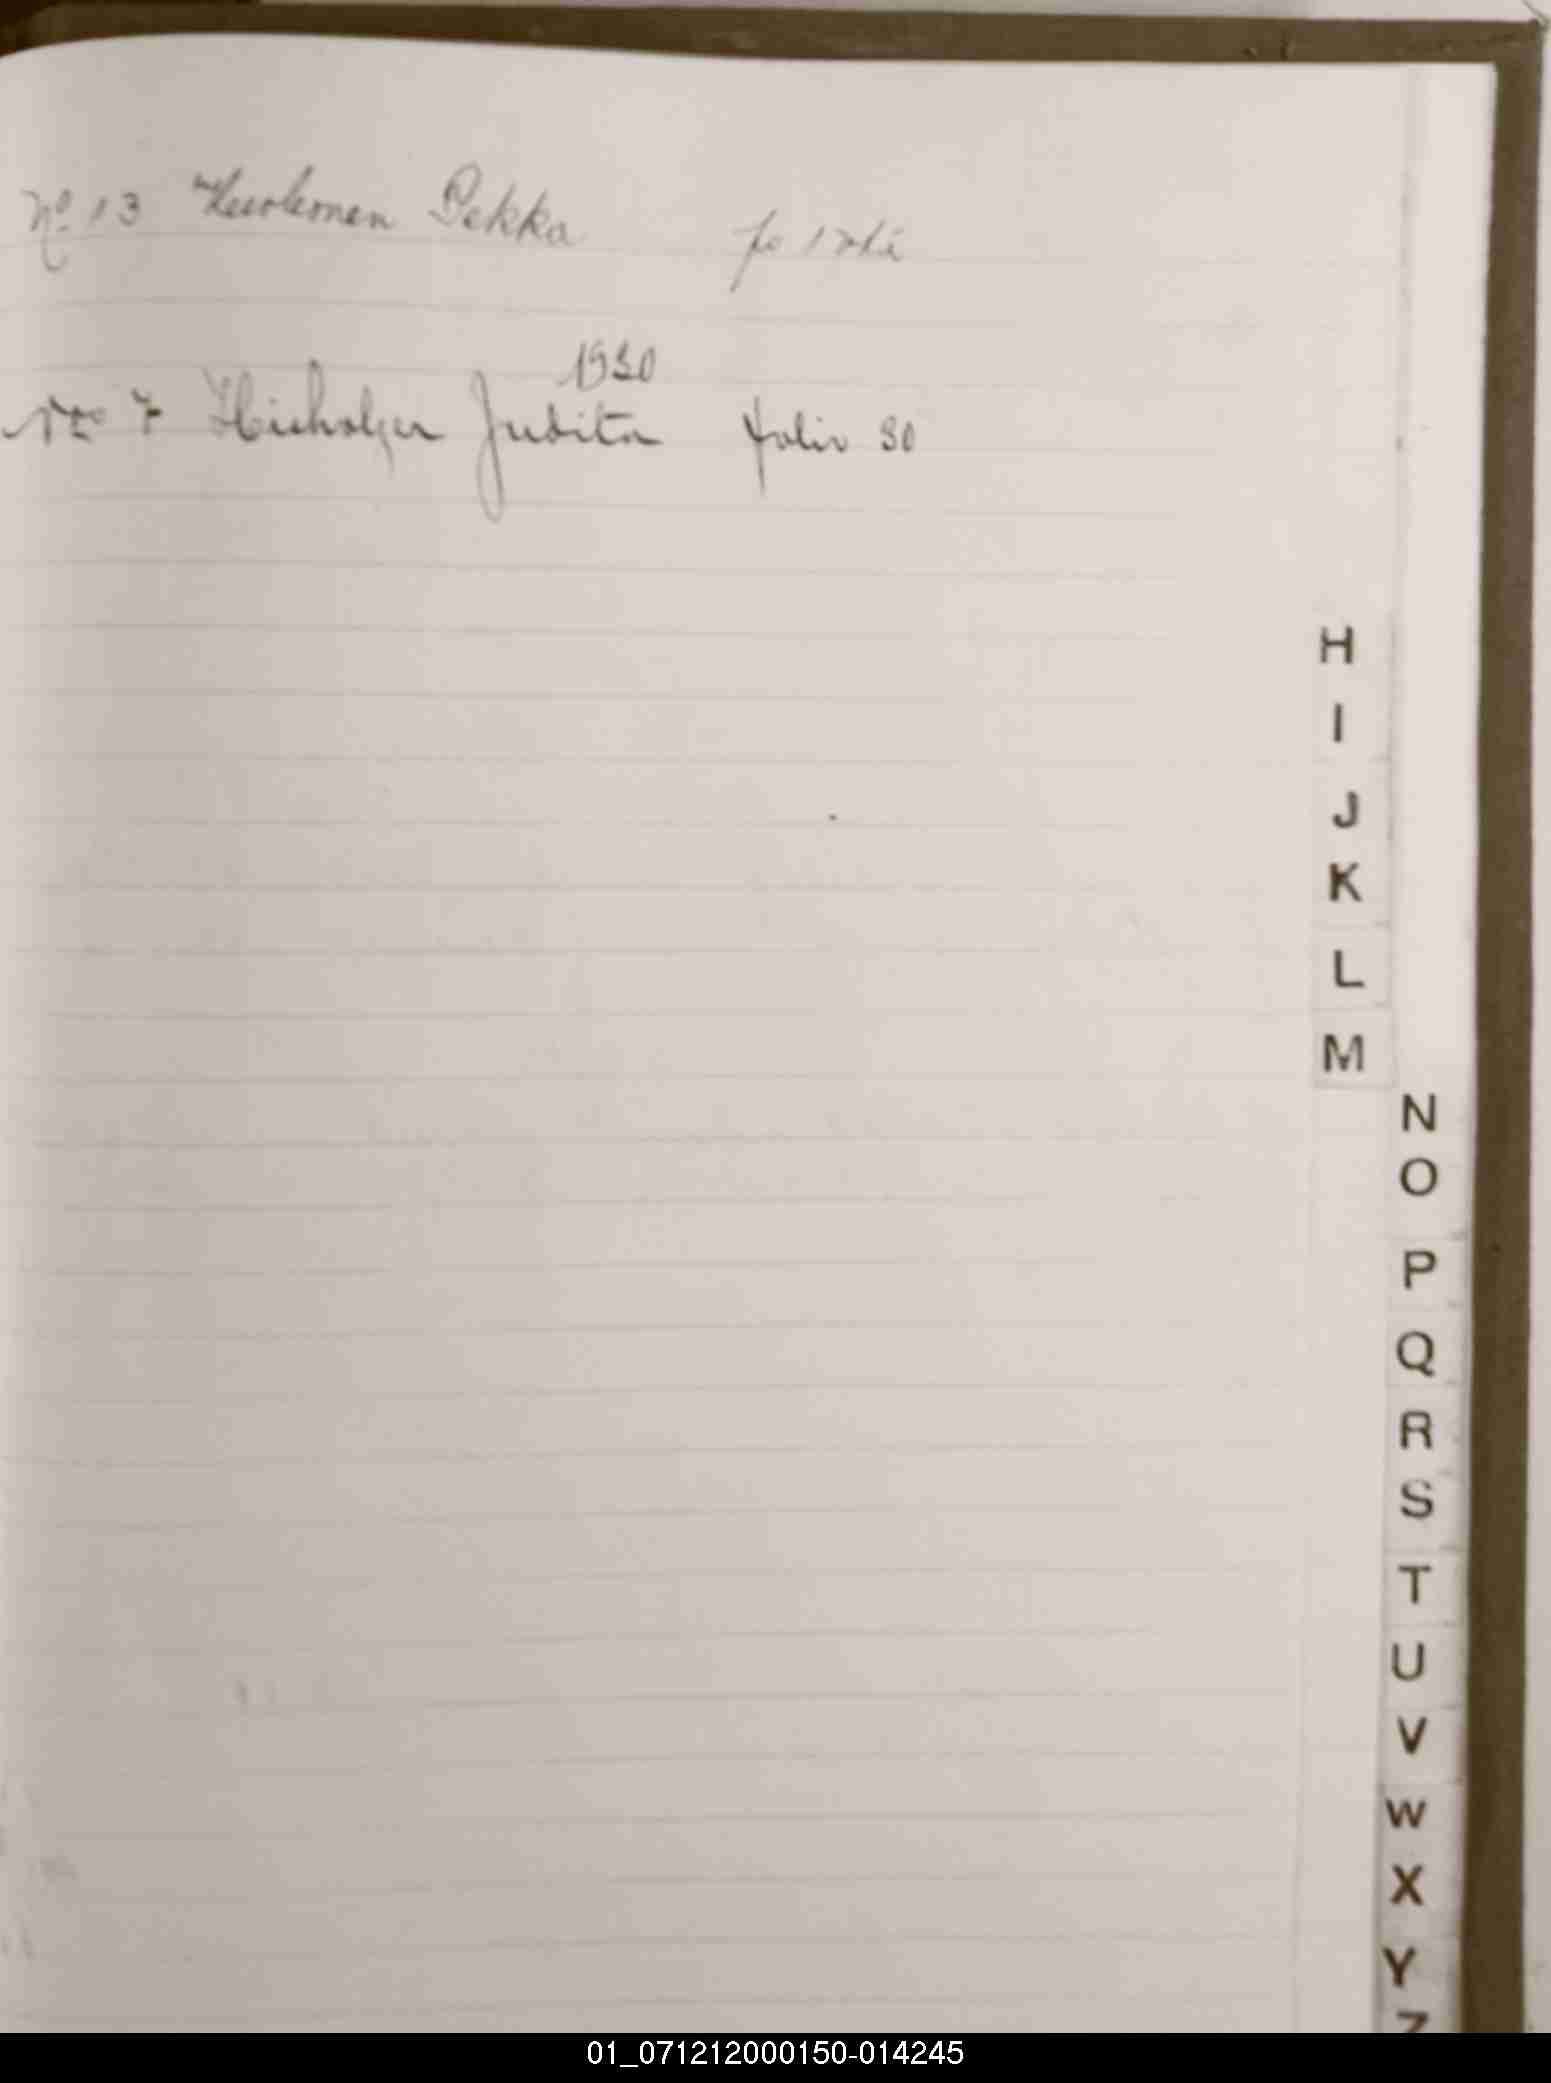 No 13 Heiskonen Pekka fo
1930
No 7 Hisholzer Judita folio 30
H
I
J
K
L
M
N
O
P
Q
R
S
T
U
V
W
X
Y
Z
01_071212000150-014245